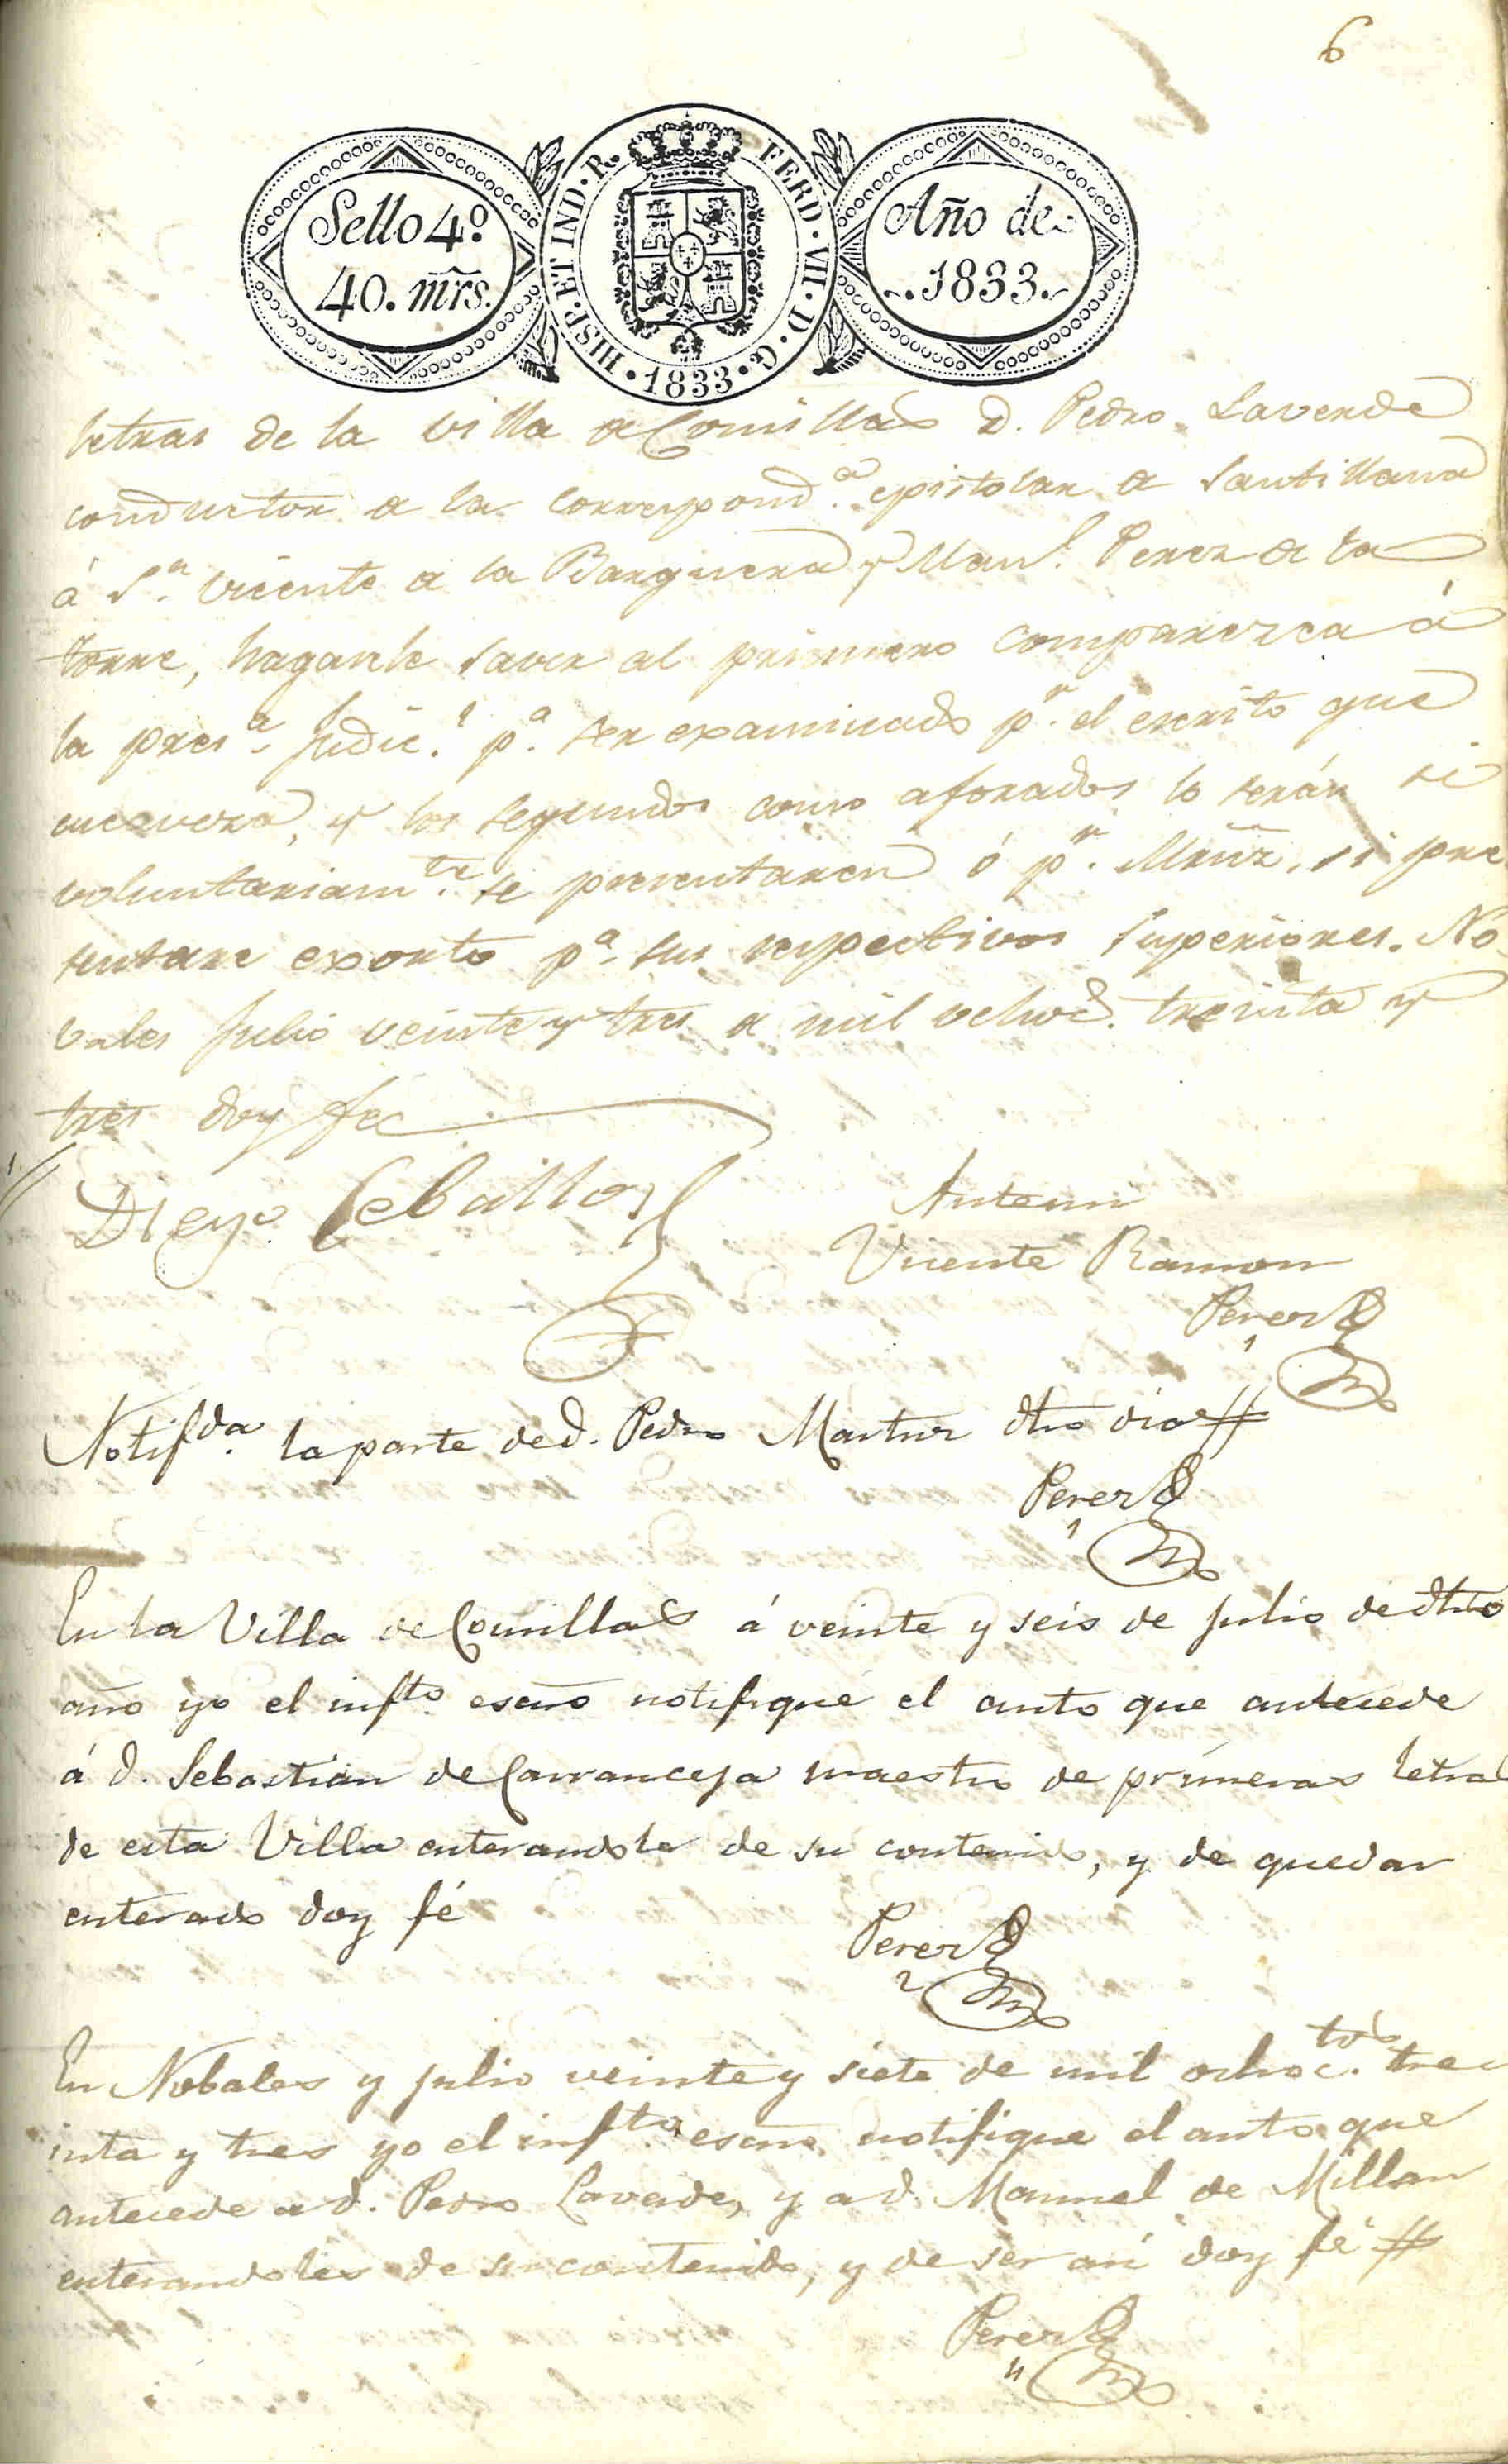 6
Sello 4º
40. mrs.
HISP. ET IND. R. FERD. VII. D. G. 1833
Año de
1833.
letras de la villa de Comillas D. Pedro Laverde
conductor de la correspond.ª epistolar de Santillana
á S.n Vicente de la Barquera y Man.l Perez de la
torre, hagasele saver al primero comparezca á
la pres.ª Judic.l p.ª ser examinado p.r el escrito que
encaveza, y los segundos como aforados lo serán si
voluntariam.te se presentaren ó p.r si pre
sentare exorto p.ª sus respectivos superiores. No
vales Julio veinte y tres de mil ochoc.s treinta y
tres doy fee
Diego Ceballos
Antemi
Vicente Ramon
Perez
Notif.da la parte de d. Pedro Martnz dho dia #
Perez
1
En la Villa de Comillas á veinte y seis de julio de dho
año yo el inf.to esno notifiqué el auto que antecede
á d. Sebastian de Carranceja maestro de primeras letras
de esta Villa enterandole de su contenido, y de quedar
enterado doy fé
Perez
2
En Nobales y julio veinte y siete de mil ochoc.tos tre
inta y tres yo el inf.to esno notifique el auto que
antecede a d. Pedro Laverde, y a d. Manuel de Millan
enterandoles de su contenido, y de ser asi doy fé #
Perez